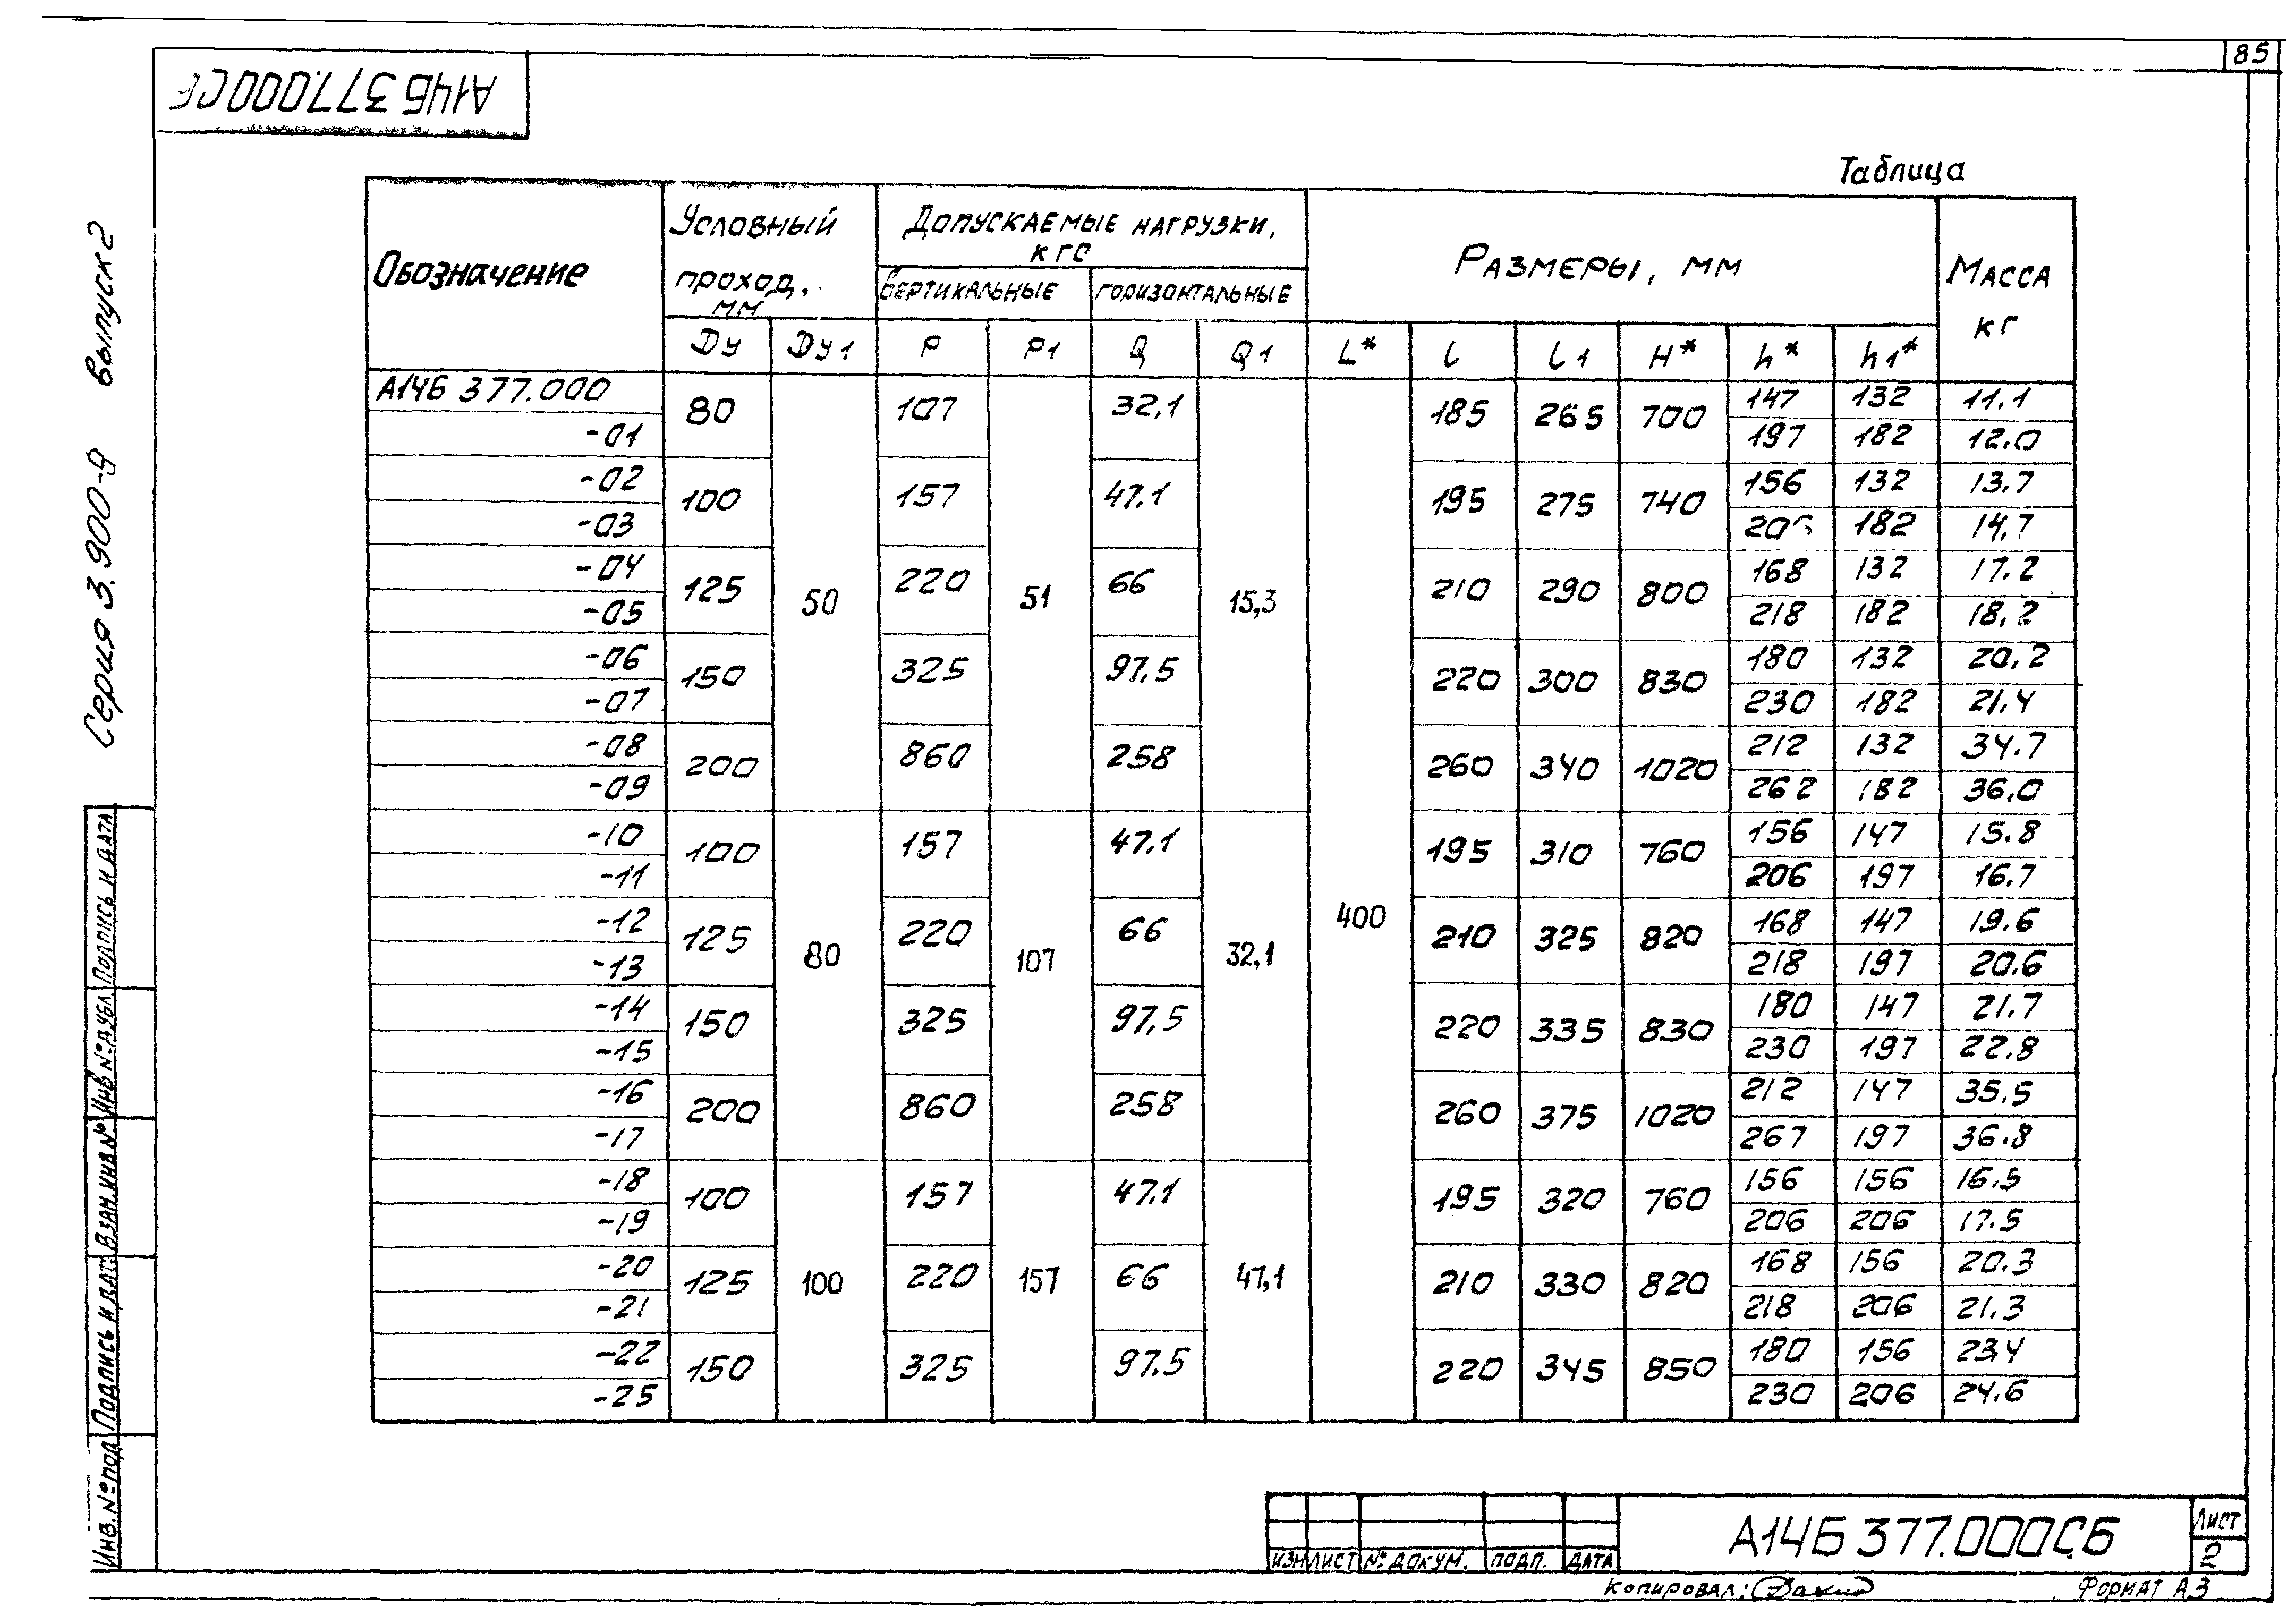 85
А14Б 377.000СБ
Таблица
Серия 3.900-9 выпуск 2
Обозначение
Условный проход, мм
Допускаемые нагрузки, кгс
вертикальные
горизонтальные
Размеры, мм
Масса кг
Dу Dу1 P P1 Q Q1 L* l l1 H* h* h1*
А14Б 377.000 80 107 32,1 185 265 700 147 132 11.1
-01 197 182 12.0
-02 100 157 47.1 195 275 740 156 132 13.7
-03 182 14.7
-04 125 50 220 51 66 15,3 210 290 800 168 132 17.2
-05 218 182 18.2
-06 150 325 97.5 220 300 830 180 132 20.2
-07 230 182 21.4
-08 200 860 258 260 340 1020 212 132 34.7
-09 262 182 36.0
-10 100 157 47.1 195 310 760 156 147 15.8
-11 206 197 16.7
-12 125 80 220 107 66 32,1 400 210 325 820 168 147 19.6
-13 218 197 20.6
-14 150 325 97,5 220 335 830 180 147 21.7
-15 230 197 22.8
-16 200 860 258 260 375 1020 212 147 35.5
-17 267 197 36.8
-18 100 157 47.1 195 320 760 156 156 16.5
-19 206 206 17.5
-20 125 100 220 157 66 47,1 210 330 820 168 156 20.3
-21 218 206 21.3
-22 150 325 97.5 220 345 850 180 156 23,4
-25 230 206 24.6
Инв. № под Подпись и дата Взам. инв № Инв № дубл Подпись и дата
изм лист № докум. подп. дата
А14Б 377.000СБ
Лист
2
Копировал:
Формат А3